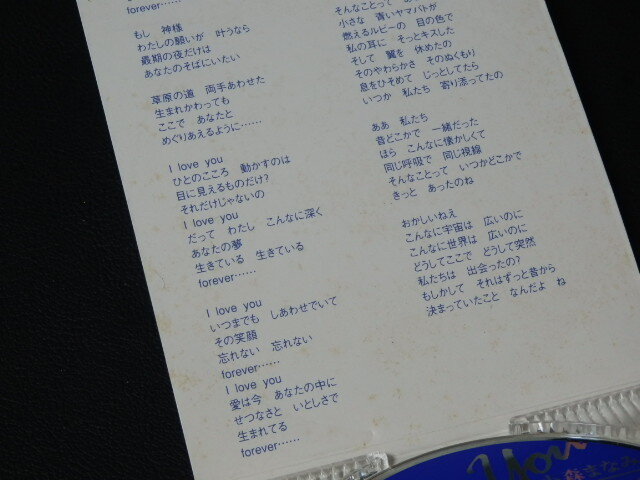 forever……
もし　神様
わたしの願いが　叶うなら
最期の夜だけは
あなたのそばにいたい
草原の道　両手あわせた
生まれかわっても
ここで　あなたと
めぐりあえるように……
I love you
ひとのこころ　動かすのは
目に見えるものだけ?
それだけじゃないの
I love you
だって　わたし　こんなに深く
あなたの夢
生きている　生きている
forever……
I love you
いつまでも　しあわせでいて
その笑顔
忘れない　忘れない
forever……
I love you
愛は今　あなたの中に
せつなさと　いとしさで
生まれてる
forever……
そんなことって　あ
小さな　青いヤマバトが
燃えるルビーの　目の色で
私の耳に　そっとキスした
そして　翼を　休めたの
そのやわらかさ　そのぬくもり
息をひそめて　じっとしてたら
いつか　私たち　寄り添ってたの
ああ　私たち
昔どこかで　一緒だった
ほら　こんなに懐かしくて
同じ呼吸で　同じ視線
そんなことって　いつかどこかで
きっと　あったのね
おかしいねえ
こんなに宇宙は　広いのに
こんなに世界は　広いのに
どうしてここで　どうして突然
私たちは　出会ったの?
もしかして　それはずっと昔から
決まっていたこと　なんだよ　ね
You
森まなみ